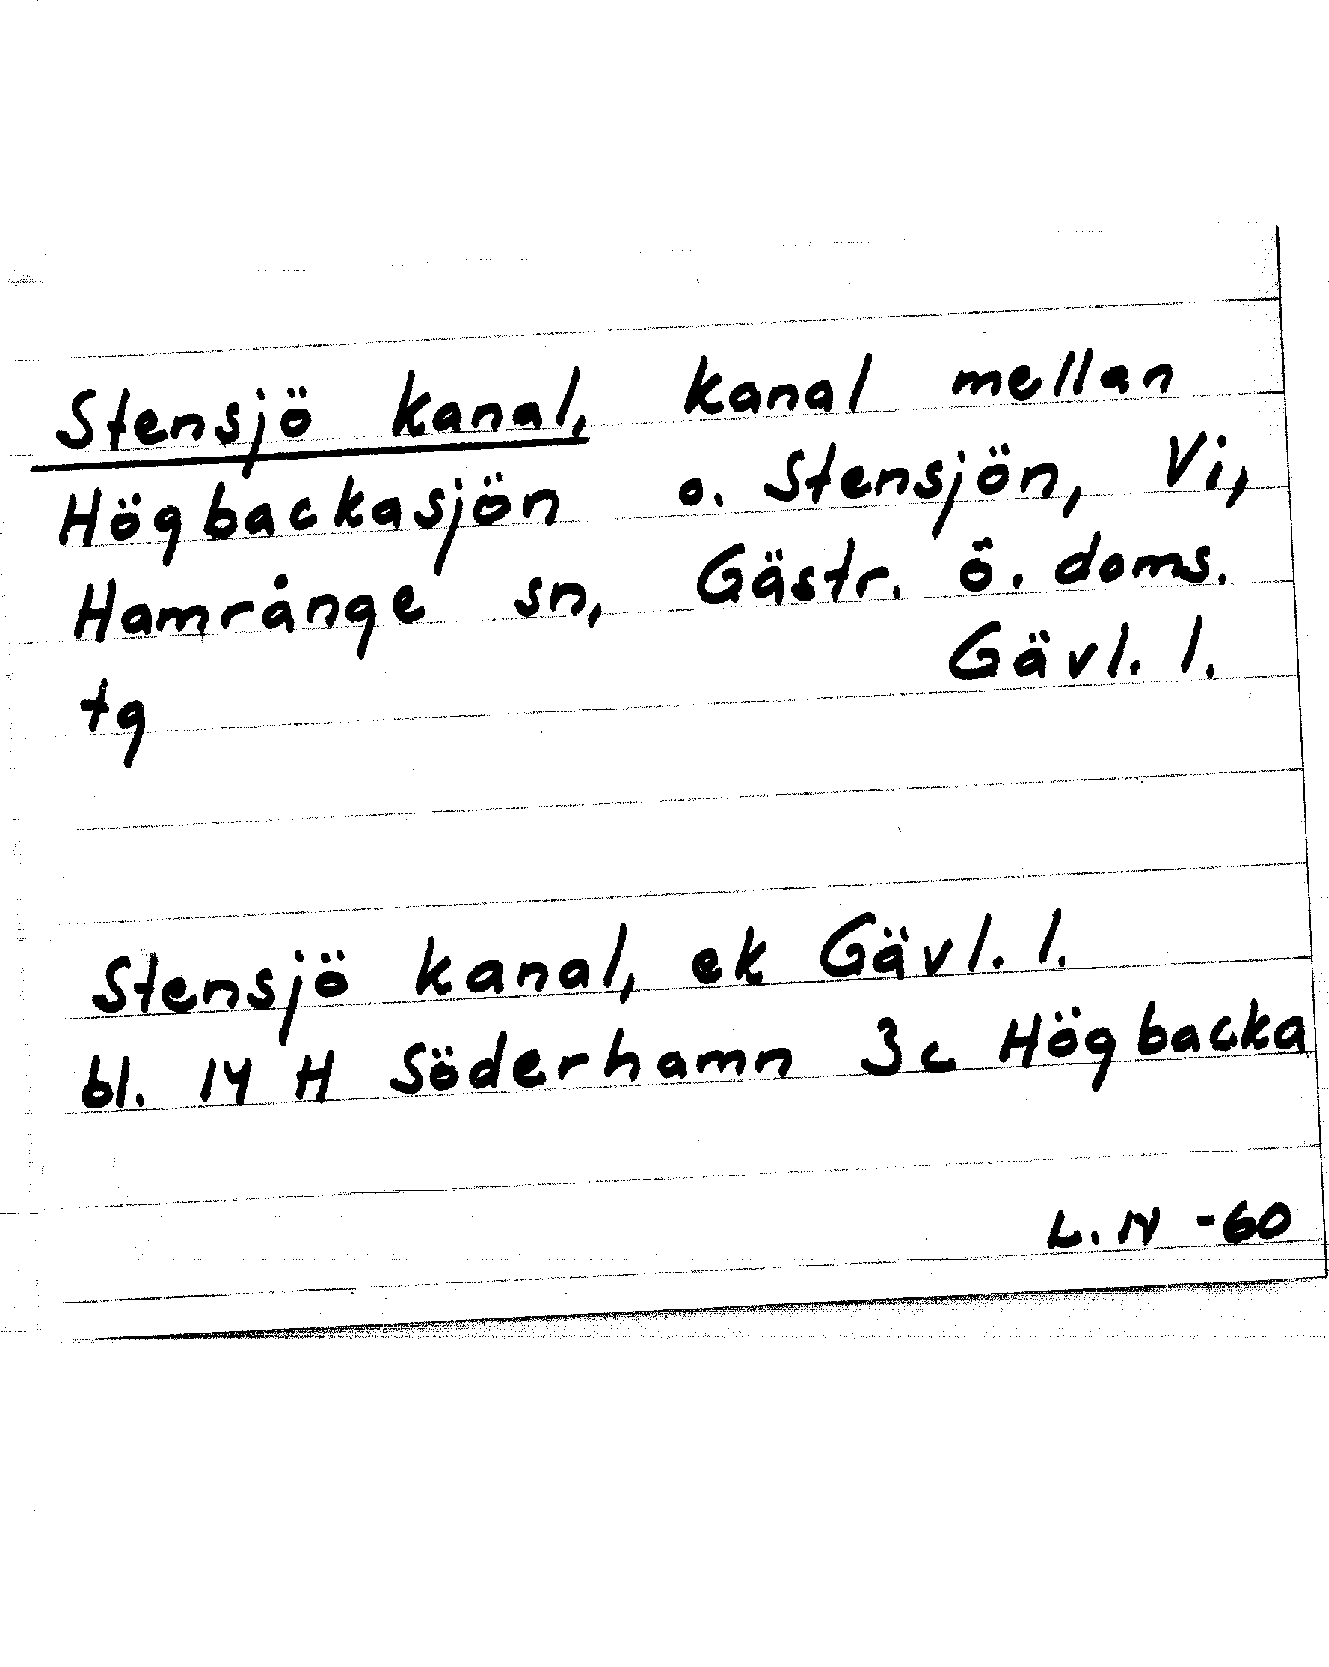 Stensjö kanal, kanal mellan
Högbackasjön o. Stensjön, Vi,
Hamrånge sn, Gästr. ö. doms.
Gävl. l.
tg
Stensjö kanal, ek Gävl. l.
bl. 14 H Söderhamn 3c Högbacka
L. N -60